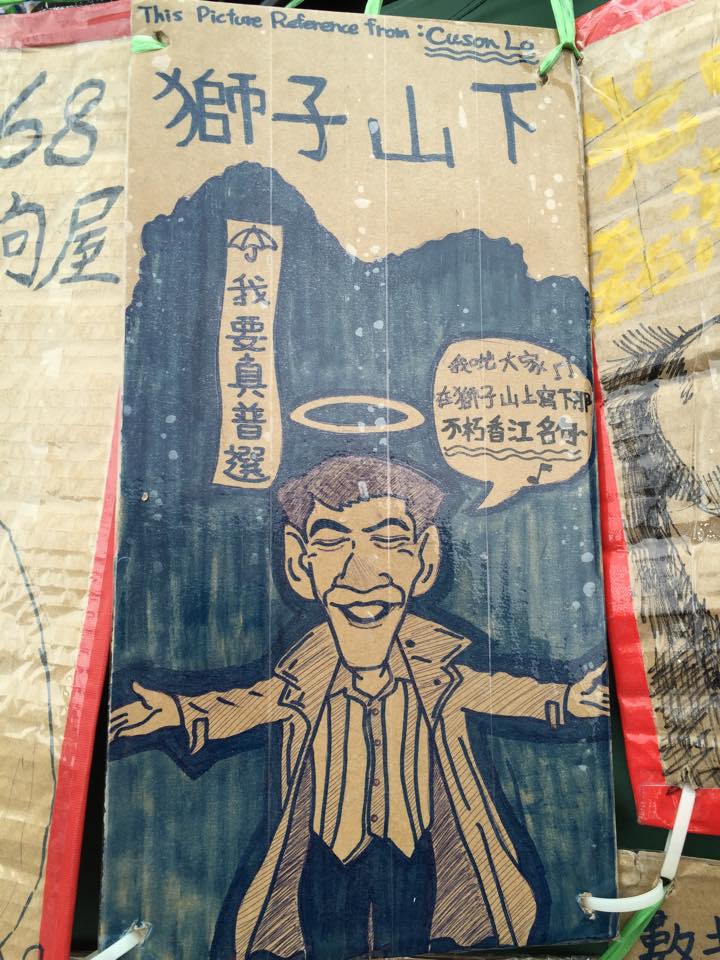 This Picture Reference from : Cuson Lo
獅子山下
我要真普選
我哋大家
在獅子山上寫下那
不朽香江名句
68